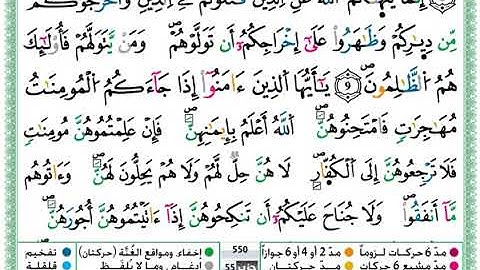 إِنَّمَا يَنْهَىٰكُمُ ٱللَّهُ عَنِ ٱلَّذِينَ قَٰتَلُوكُمْ فِى ٱلدِّينِ وَأَخْرَجُوكُم
مِّن دِيَٰرِكُمْ وَظَٰهَرُوا۟ عَلَىٰٓ إِخْرَاجِكُمُۥٓ أَن تَوَلَّوْهُمْ ۖ وَمَن يَتَوَلَّهُمْ فَأُو۟لَٰٓئِكَ
هُمُ ٱلظَّٰلِمُونَ ۝٩ يَٰٓأَيُّهَا ٱلَّذِينَ ءَامَنُوٓا۟ إِذَا جَآءَكُمُ ٱلْمُومِنَٰتُ
مُهَٰجِرَٰتٍ فَٱمْتَحِنُوهُنَّ ۖ ٱللَّهُ أَعْلَمُ بِإِيمَٰنِهِنَّ ۖ فَإِنْ عَلِمْتُمُوهُنَّ مُومِنَٰتٍ
فَلَا تَرْجِعُوهُنَّ إِلَى ٱلْكُفَّارِ ۖ لَا هُنَّ حِلٌّ لَّهُمْ وَلَا هُمْ يَحِلُّونَ لَهُنَّ ۖ وَءَاتُوهُم
مَّآ أَنفَقُوا۟ ۖ وَلَا جُنَاحَ عَلَيْكُمُۥٓ أَن تَنكِحُوهُنَّ إِذَآ ءَاتَيْتُمُوهُنَّ أُجُورَهُنَّ ۖ
مدّ 6 حركات لزوماً مدّ 2 أو 4 أو 6 جوازاً 550 إخفاء، ومواقع الغُنَّة (حركتان) تفخيم
مدّ مشبع 6 حركات مدّ حركتان 55 إدغام، وما لا يُلفظ قلقلة